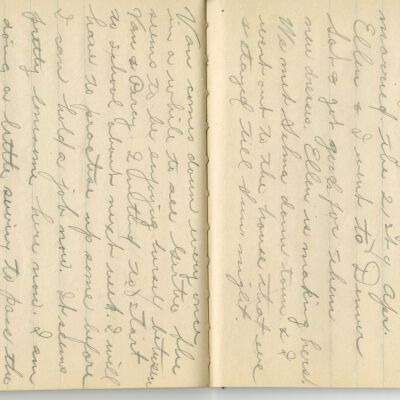 married the 21st Apr.
Ellen & I went to Denver
Sat & got goods for them
new dresses Ellen is making hers.
We met Selma down town & I
went out to the house that eve
& stayed till Sun night.
Van comes down every once
in a while to see Bertha She
seems to be enjoying herself between
Van & Percy. I to start
to school next week. I will
have to practice up some before
I can hold a job now. It seems
pretty lonesome here now. I am
doing a little sewing to pass the